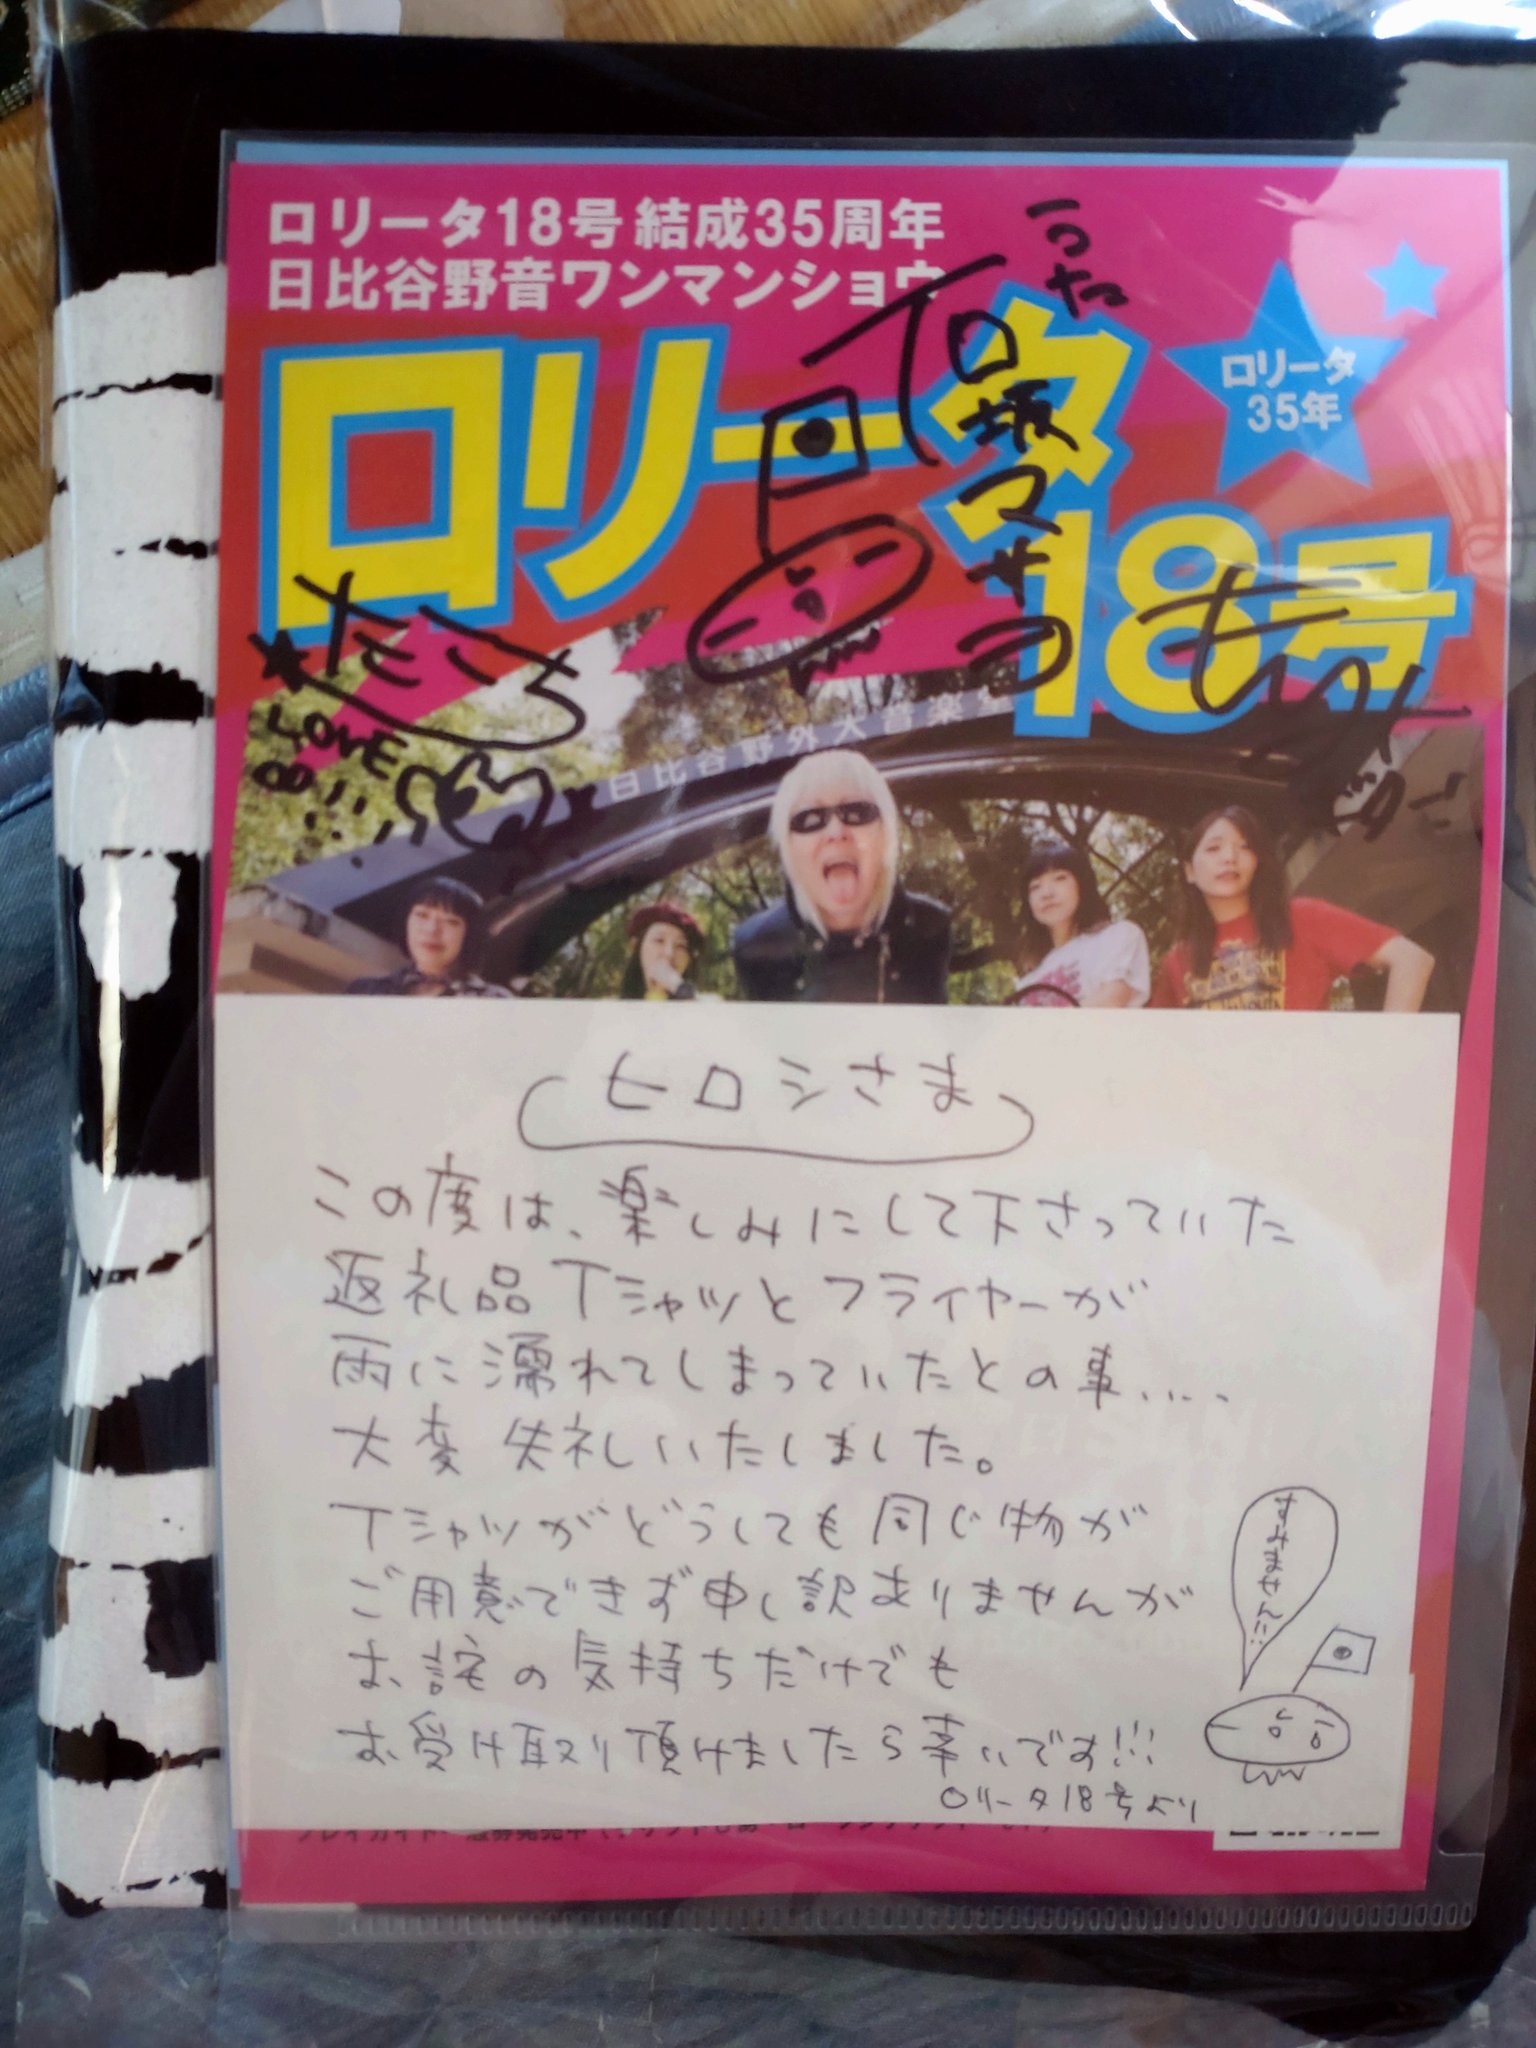 ロリータ18号 結成35周年
日比谷野音ワンマンショウ
ロリータ18号
ロリータ
35年
石坂マサヨ
たこち
LOVE
日比谷野外大音楽
ヒロシさま
この度は、楽しみにして下さっていた
返礼品Tシャツとフライヤーが
雨に濡れてしまっていたとの事....
大変失礼いたしました。
Tシャツがどうしても同じ物が
ご用意できず申し訳ありませんが
お詫の気持ちだけでも
お受け取り頂けましたら幸いです!!!
ロリータ18号より
すみません!!!